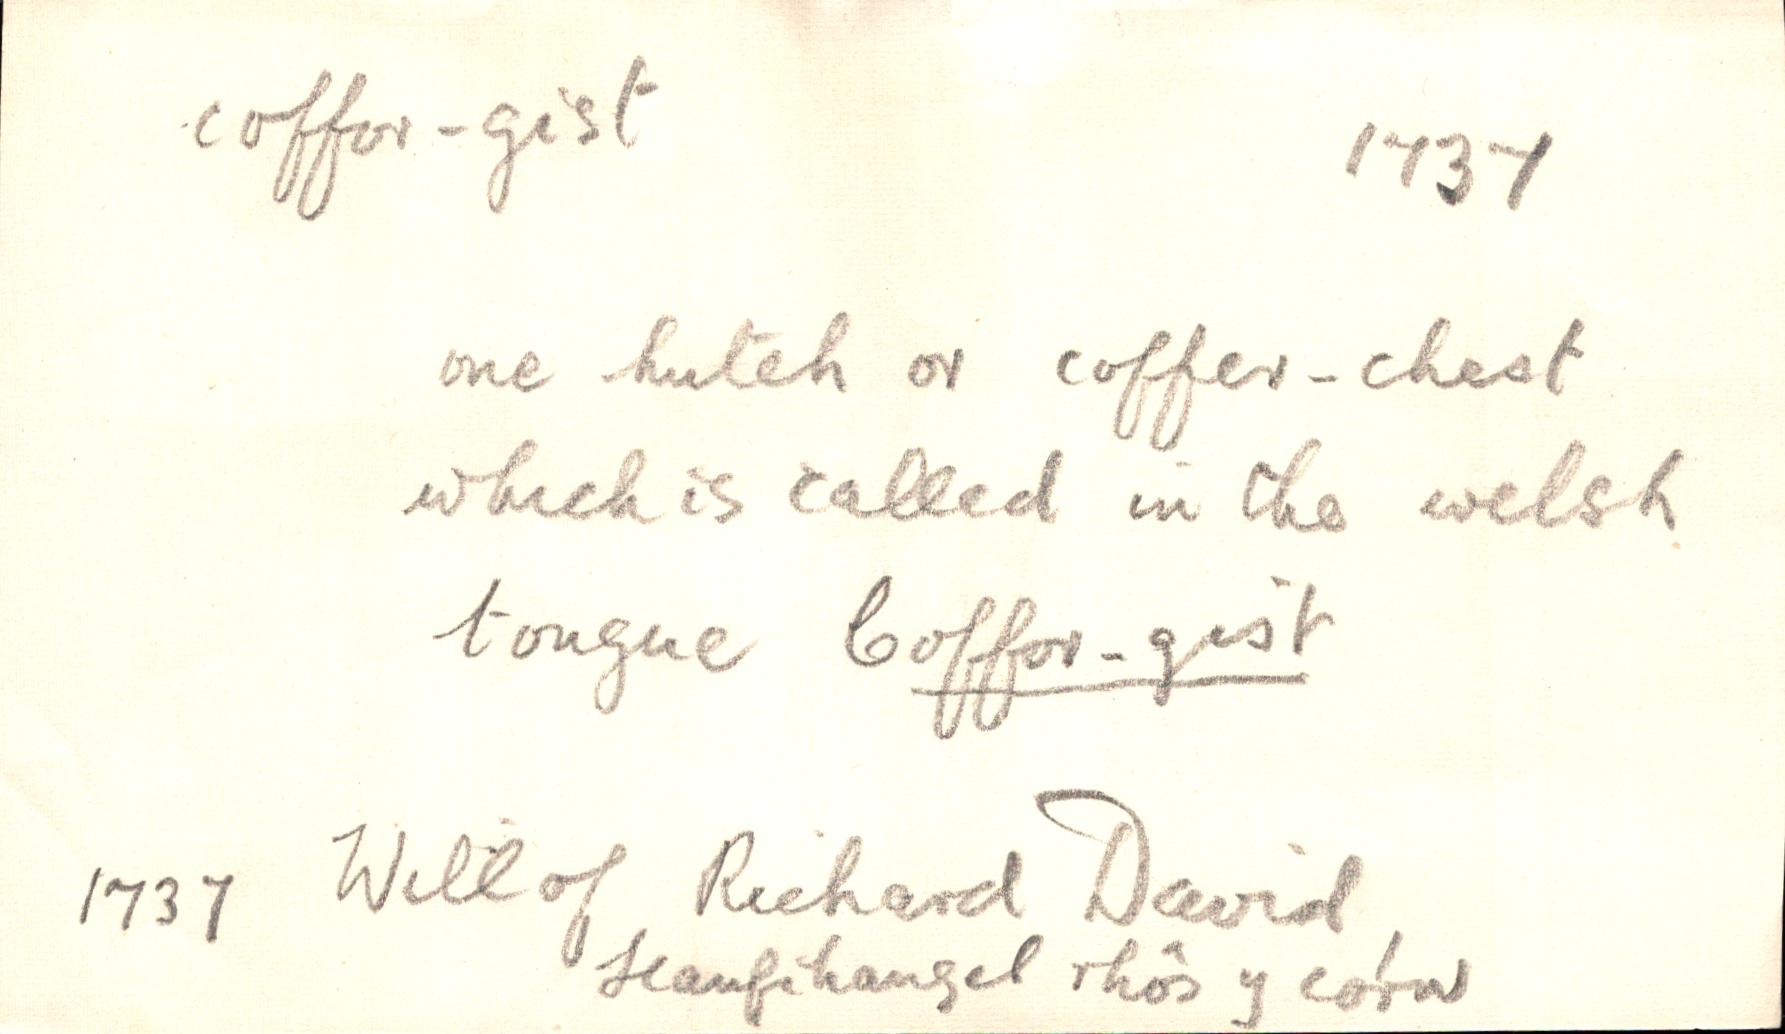 coffor-gist 1737
one hutch or coffer-chest
which is called in the welsh
tongue Coffor-gist
1737 Will of Richard David
Llanfihangel rhôs y corn